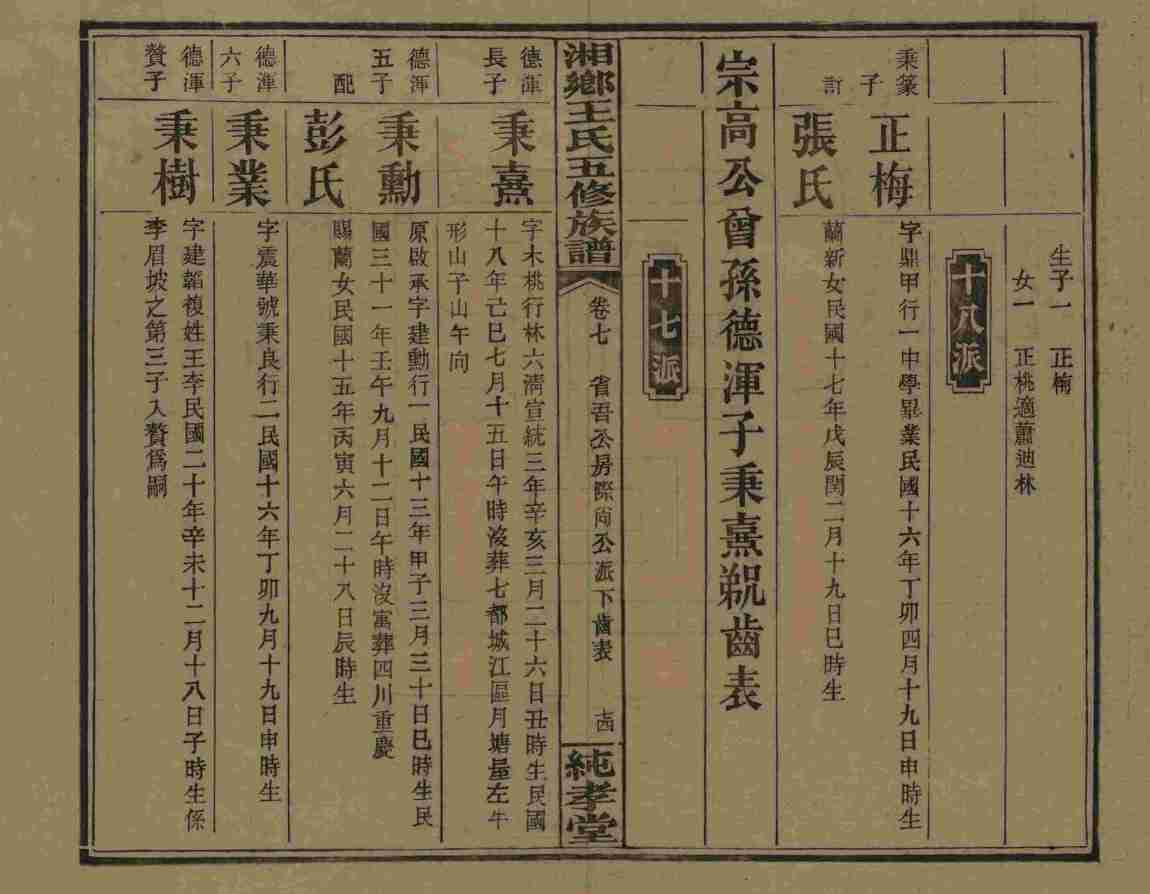 生子一　正楠
女一　正桃適蕭迪林
十八派
秉篆子
正梅
字鼎甲行一中學畢業民國十六年丁卯四月十九日申時生
訂
張氏
蘭新女民國十七年戊辰閏二月十九日巳時生
宗高公曾孫德渾子秉熹覨齒表
十七派
湘鄉王氏五修族譜
卷七　省吾公房際尚公派下齒表　十四
純孝堂
德渾長子
秉熹
字木桃行林六淸宣統三年辛亥三月二十六日丑時生民國
十八年己巳七月十五日午時沒葬七都城江區月塘㘴左牛
形山子山午向
德渾五子
秉勳
原啟承字建勳行一民國十三年甲子三月三十日巳時生民
國三十一年壬午九月十二日午時沒寓葬四川重慶
配
彭氏
賜蘭女民國十五年丙寅六月二十八日辰時生
德渾六子
秉業
字震華號秉良行二民國十六年丁卯九月十九日申時生
德渾贅子
秉樹
字建韜複姓王李民國二十年辛未十二月十八日子時生係
李眉坡之第三子入贅爲嗣